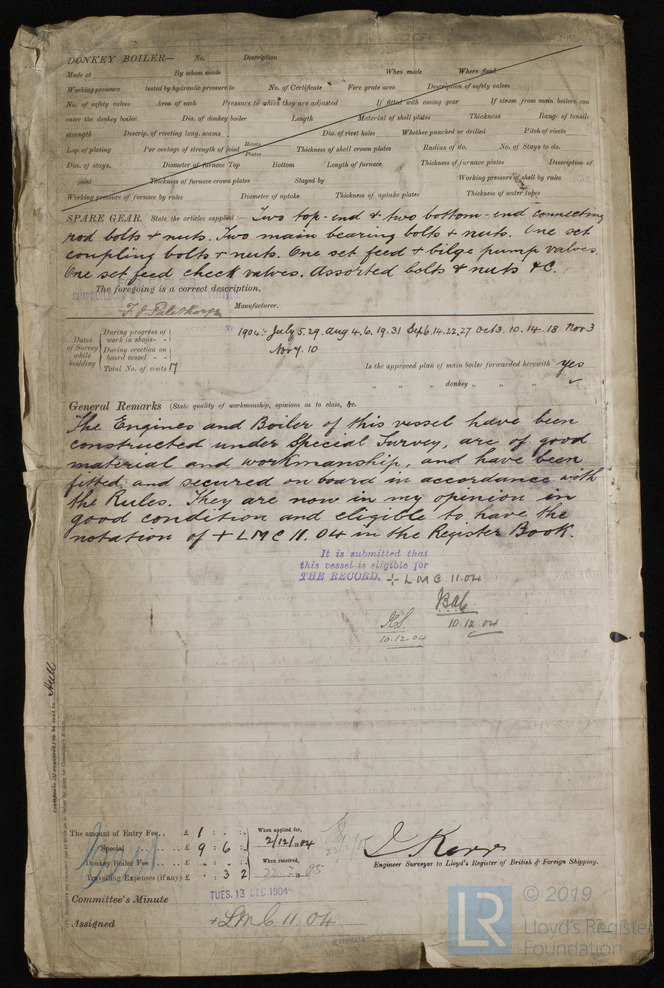 DONKEY BOILER— No. Description
Made at By whom made When made Where fixed
Working pressure tested by hydraulic pressure to No. of Certificate Fire grate area Description of safety valves
No. of safety valves Area of each Pressure to which they are adjusted If fitted with easing gear If steam from main boilers can
enter the donkey boiler Dia. of donkey boiler Length Material of shell plates Thickness Range of tensile
strength Descrip. of riveting long. seams Dia. of rivet holes Whether punched or drilled Pitch of rivets
Lap of plating Per centage of strength of joint Rivets Plates Thickness of shell crown plates Radius of do. No. of Stays to do.
Dia. of stays. Diameter of furnace Top Bottom Length of furnace Thickness of furnace plates Description of
joint Thickness of furnace crown plates Stayed by Working pressure of shell by rules
Working pressure of furnace by rules Diameter of uptake Thickness of uptake plates Thickness of water tubes
SPARE GEAR. State the articles supplied:— Two top-end & two bottom-end connecting
rod bolts & nuts. Two main bearing bolts & nuts. One set
coupling bolts & nuts. One set feed & bilge pump valves.
One set feed check valves. Assorted bolts & nuts &c.
The foregoing is a correct description,
Manufacturer.
Dates of Survey while building
During progress of work in shops - - 1904:- July 5. 29. Aug 4. 6. 19. 31 Sep 6. 14. 22. 27 Oct 3. 10. 14. 18 Nov 3
During erection on board vessel - - Nov 7. 10
Total No. of visits 17
Is the approved plan of main boiler forwarded herewith Yes
" " " donkey " " "
General Remarks (State quality of workmanship, opinions as to class, &c.
The Engines and Boiler of this vessel have been
constructed under Special Survey, are of good
material and workmanship, and have been
fitted and secured on board in accordance with
the Rules. They are now in my opinion in
good condition and eligible to have the
notation of + LMC 11.04 in the Register Book.
It is submitted that
this vessel is eligible for
THE RECORD. + LMC. 11.04
10.12.04
10.12.04
Hull
The amount of Entry Fee.. £ 1 : . : . When applied for,
Special .. £ 9 : 6 : . 2/12/04
Donkey Boiler Fee .. £ : : When received,
Travelling Expenses (if any) £ . : 3 : 2
Engineer Surveyor to Lloyd's Register of British & Foreign Shipping.
Committee's Minute TUES. 13 DEC 1904
Assigned + LMC 11.04
© 2019
LR Lloyd's Register
Foundation